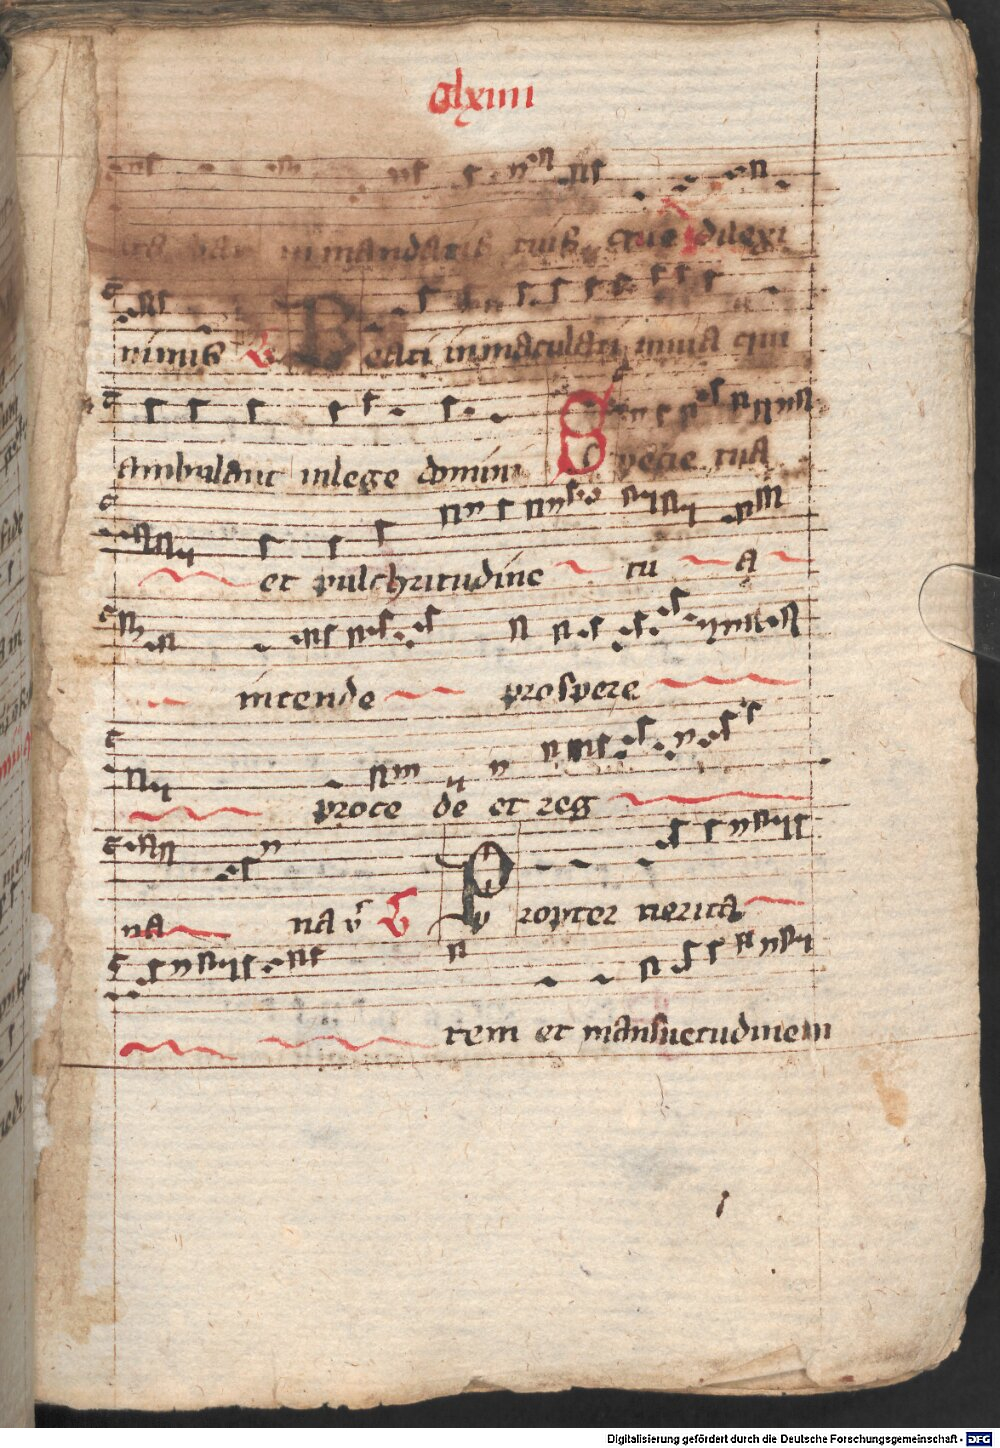 clxiiii
in mandatis tuis que dilexi
nimis V Beati inmaculati in via qui
ambulant in lege domini Specie tua
et pulchritudine tu a
intende prospere
proce de et reg
na na V Propter uerita
tem et mansuetudinem
Digitalisierung gefördert durch die Deutsche Forschungsgemeinschaft - DFG